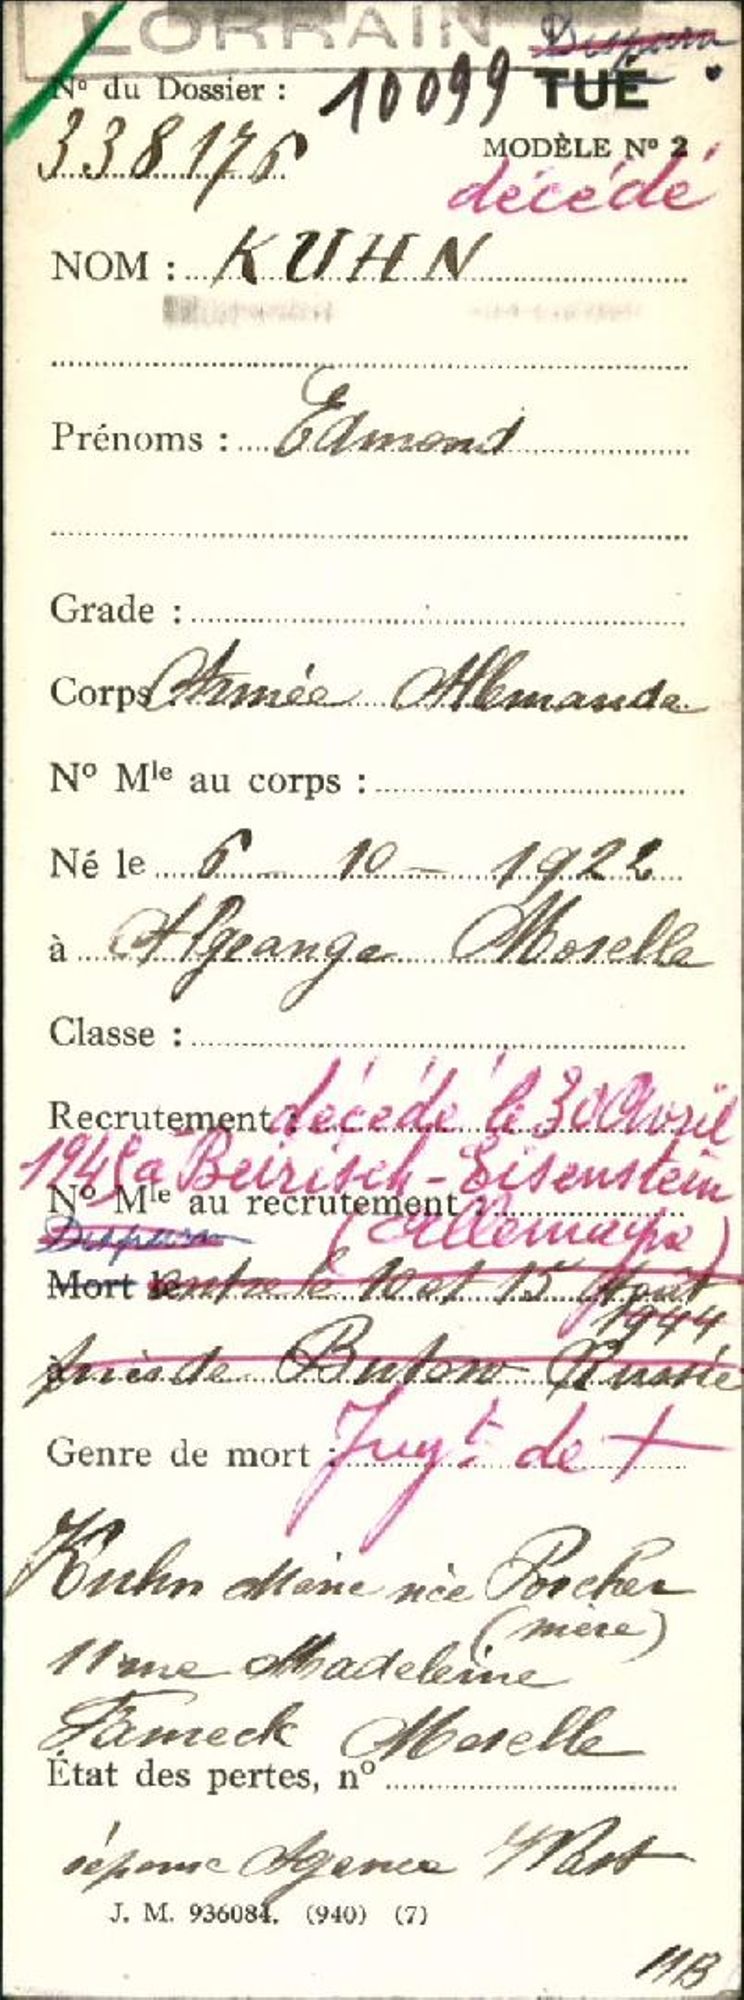 LORRAIN Disparu
N° du Dossier : 10099 TUÉ
338176 MODÈLE N° 2
décédé
NOM : KUHN
Prénoms : Edmond
Grade :
Corps Armée Allemande
N° Mle au corps :
Né le 6 - 10 - 1922
à Algrange Moselle
Classe :
Recrutement : décédé le 30 Avril
1945 à Beirisch-Eisenstein
N° Mle au recrutement :
(Allemagne)
Disparu
Mort le entre le 10 et 15 Août
1944
près de Butow Russie
Genre de mort : Jugt de +
Kuhn Marie née Porcher
(mère)
11 rue Madeleine
Fameck Moselle
État des pertes, n°
réponse Agence Wast
J. M. 936084. (940) (7)
MB